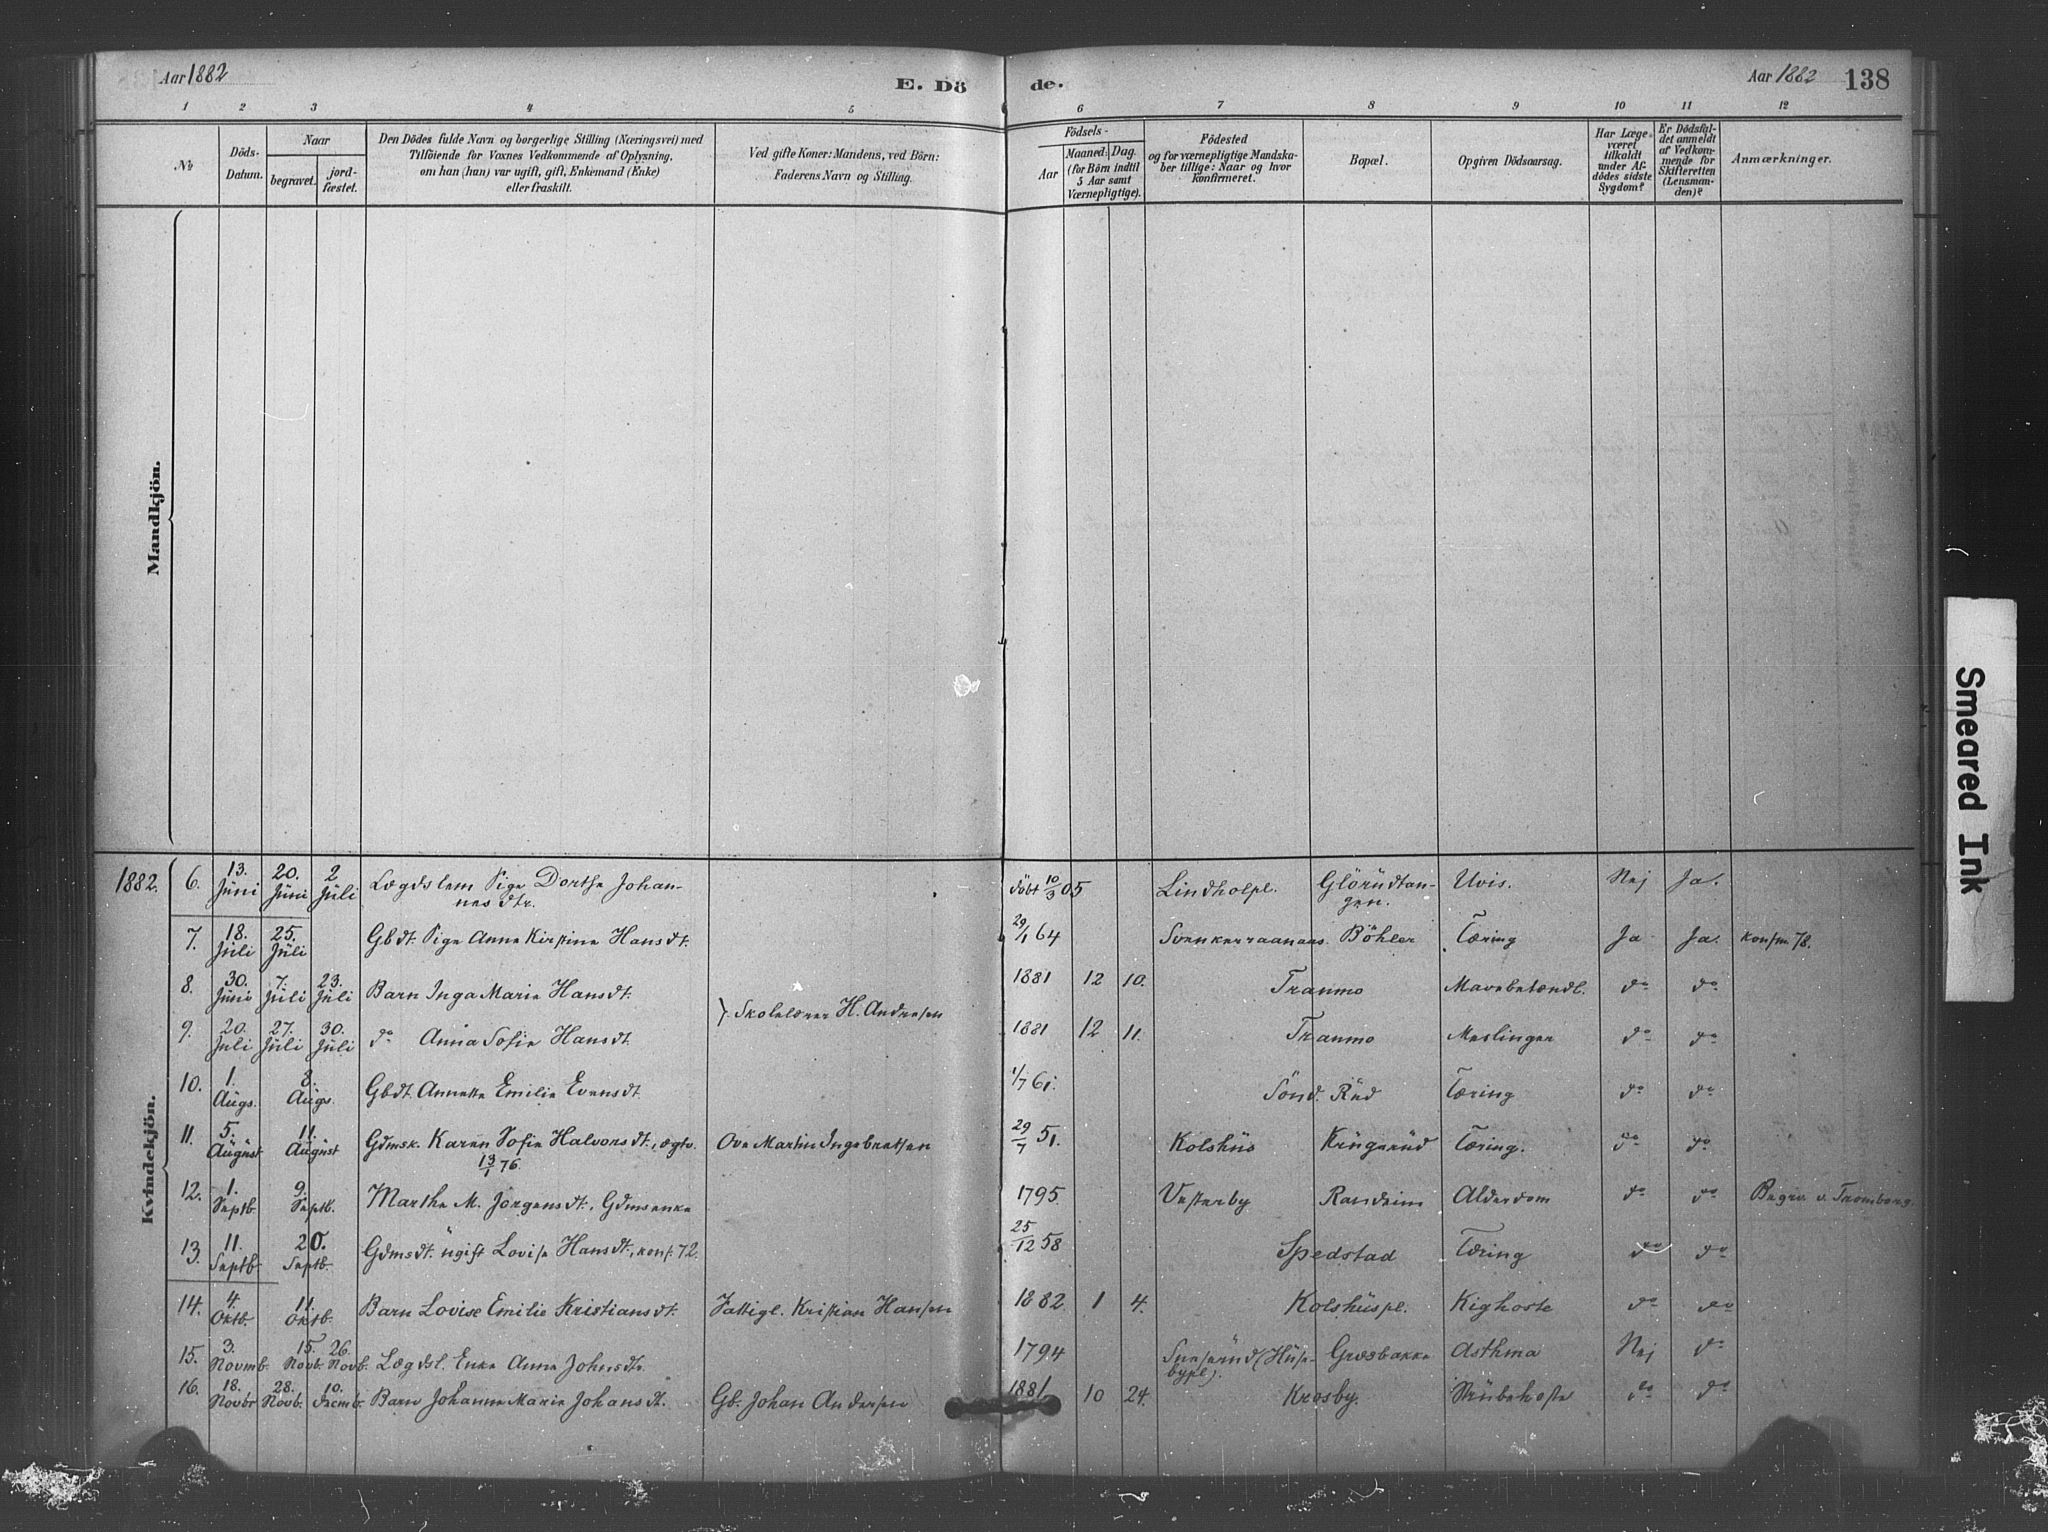 Aar 1882
E. Dö
de.
Aar 1882
138
1 2 3 4 5 6 7 8 9 10 11 12
No
Döds-Datum.
Naar
begravet.
jord-fæstet.
Den Dödes fulde Navn og borgerlige Stilling (Næringsvei) med
Tilföiende for Voxnes Vedkommende af Oplysning,
om han (hun) var ugift, gift, Enkemand (Enke)
eller fraskilt.
Ved gifte Koner: Mandens, ved Börn:
Faderens Navn og Stilling.
Födsels-
Aar
Maaned. Dag.
(for Börn indtil
5 Aar samt
Værnepligtige).
Födested
og for værnepligtige Mandska-
ber tillige: Naar og hvor
konfirmeret.
Bopæl.
Opgiven Dödsaarsag.
Har Læge
været
tilkaldt
under Af-
dödes sidste
Sygdom?
Er Dödsfal-
det anmeldt
af Vedkom-
mende for
Skifteretten
(Lensman-
den)?
Anmærkninger.
Mandkjön.
Kvindekjön.
1882. 6. 13. Juni 20. Juni 2 Juli Lægdslem Pige Dorthe Johan-
nesdtr. Födt 10/3 05 Lindholpl. Glörudtan-
gen. Uvis. Nej Ja.
7. 18. Juli 25. Juli Gbdt. Pige Anne Kirstine Hansdt. 29/1 64 Böhler Tæring Ja Ja. konfm 78.
8. 30. Juni 7. Juli 23. Juli Barn Inga Marie Hansdt. } Skolelærer H. Andresen 1881 12 10. Tranmo Mavebetændl. do do
9. 20. Juli 27. Juli 30. Juli do Anna Sofie Hansdt. 1881 12 11. Tranmo Meslinger do do
10. 1. Augs. 8. Augs. Gbdt. Annette Emilie Evensdt. 1/7 61. Sönd. Rud Tæring do do
11. 5. August 11. August Gdmsk. Karen Sofie Halvorsdt., ægtv. Ove Martin Ingebretsen 29/7 51. Kolshus Krugerud Tæring. do do
13/1 76.
12. 1. Septb. 9. Septb. Marthe M. Jörgensdt., Gdmsenke 1795. Vesterby Randeim Alderdom do do Begrv. v. Tromborg.
13. 11. Septb. 20. Septb. Gdmsdt. ugift Lovise Hansdt., konf. 72. 25/12 58 Spedstad Tæring do do
14. 4. Oktb. 11. Oktb. Barn Lovise Emilie Kristiansdt. Fattigl. Kristian Hansen 1882. 1 4. Kolshuspl. Kighoste do do
15. 3. Novmb. 15. Novb. 26. Novb. Lægdsl. Enke Anne Johnsdtr. 1794 (Huse-
bypl). Græsbakke Asthma Nej do
16. 18. Novbr 28. Novb. 10. Decmb. Barn Johanne Marie Johansdt. Gb. Johan Andersen 1881. 10 24. Krosby. Strubehoste do do
Smeared Ink